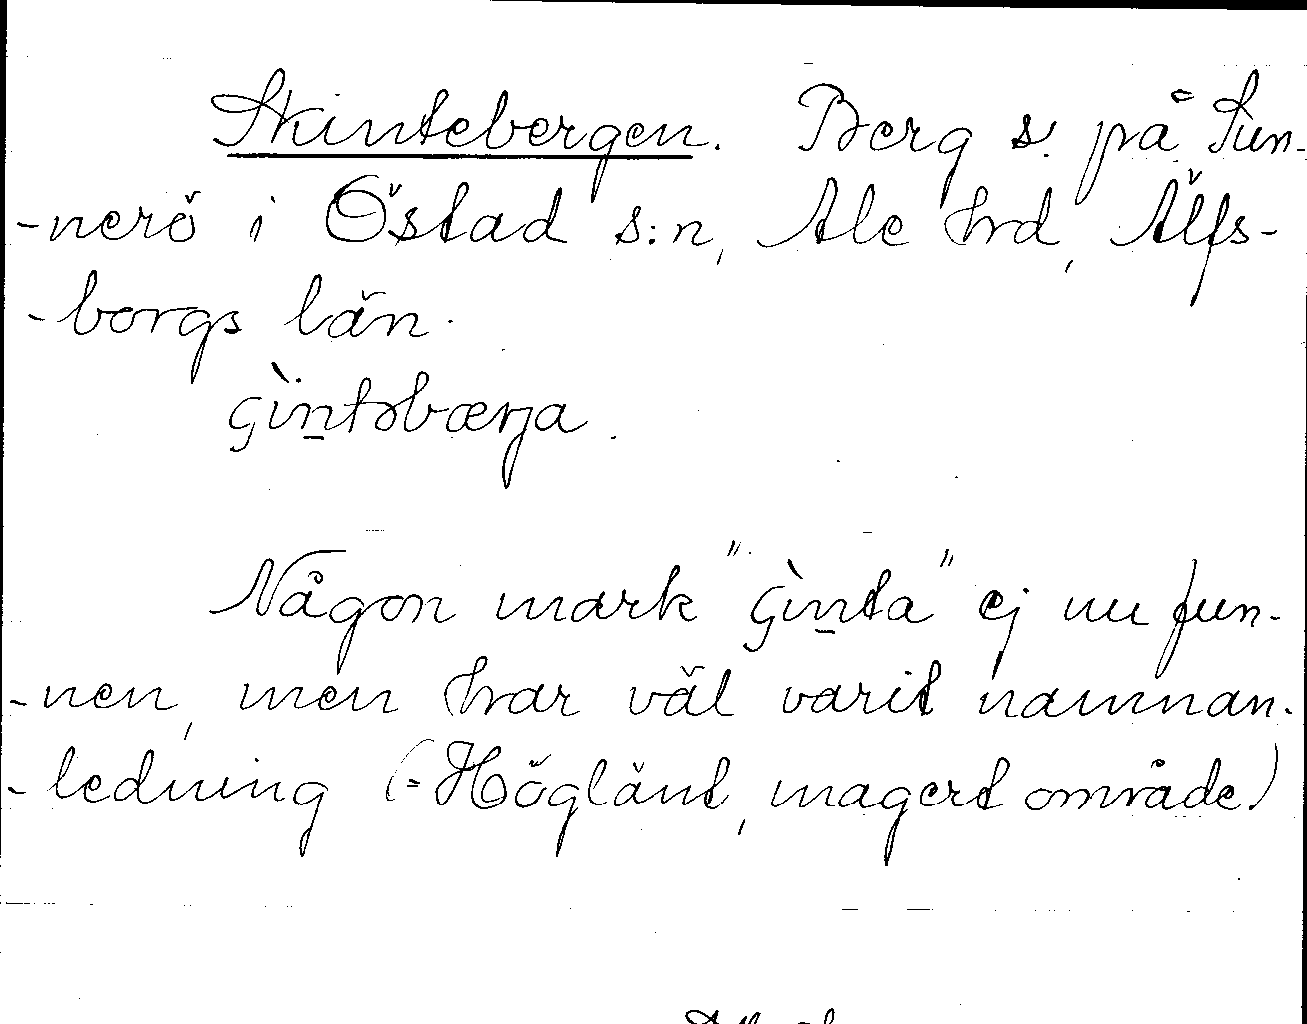 Skintebergen. Berg s. på Sun-
-nerö i Östad s:n, Ale hrd, Älfs-
-borgs län.
çìntəbærja.
Någon mark "çìnta" ej nu fun-
-nen, men har väl varit namnan-
-ledning (=Höglänt, magert område)